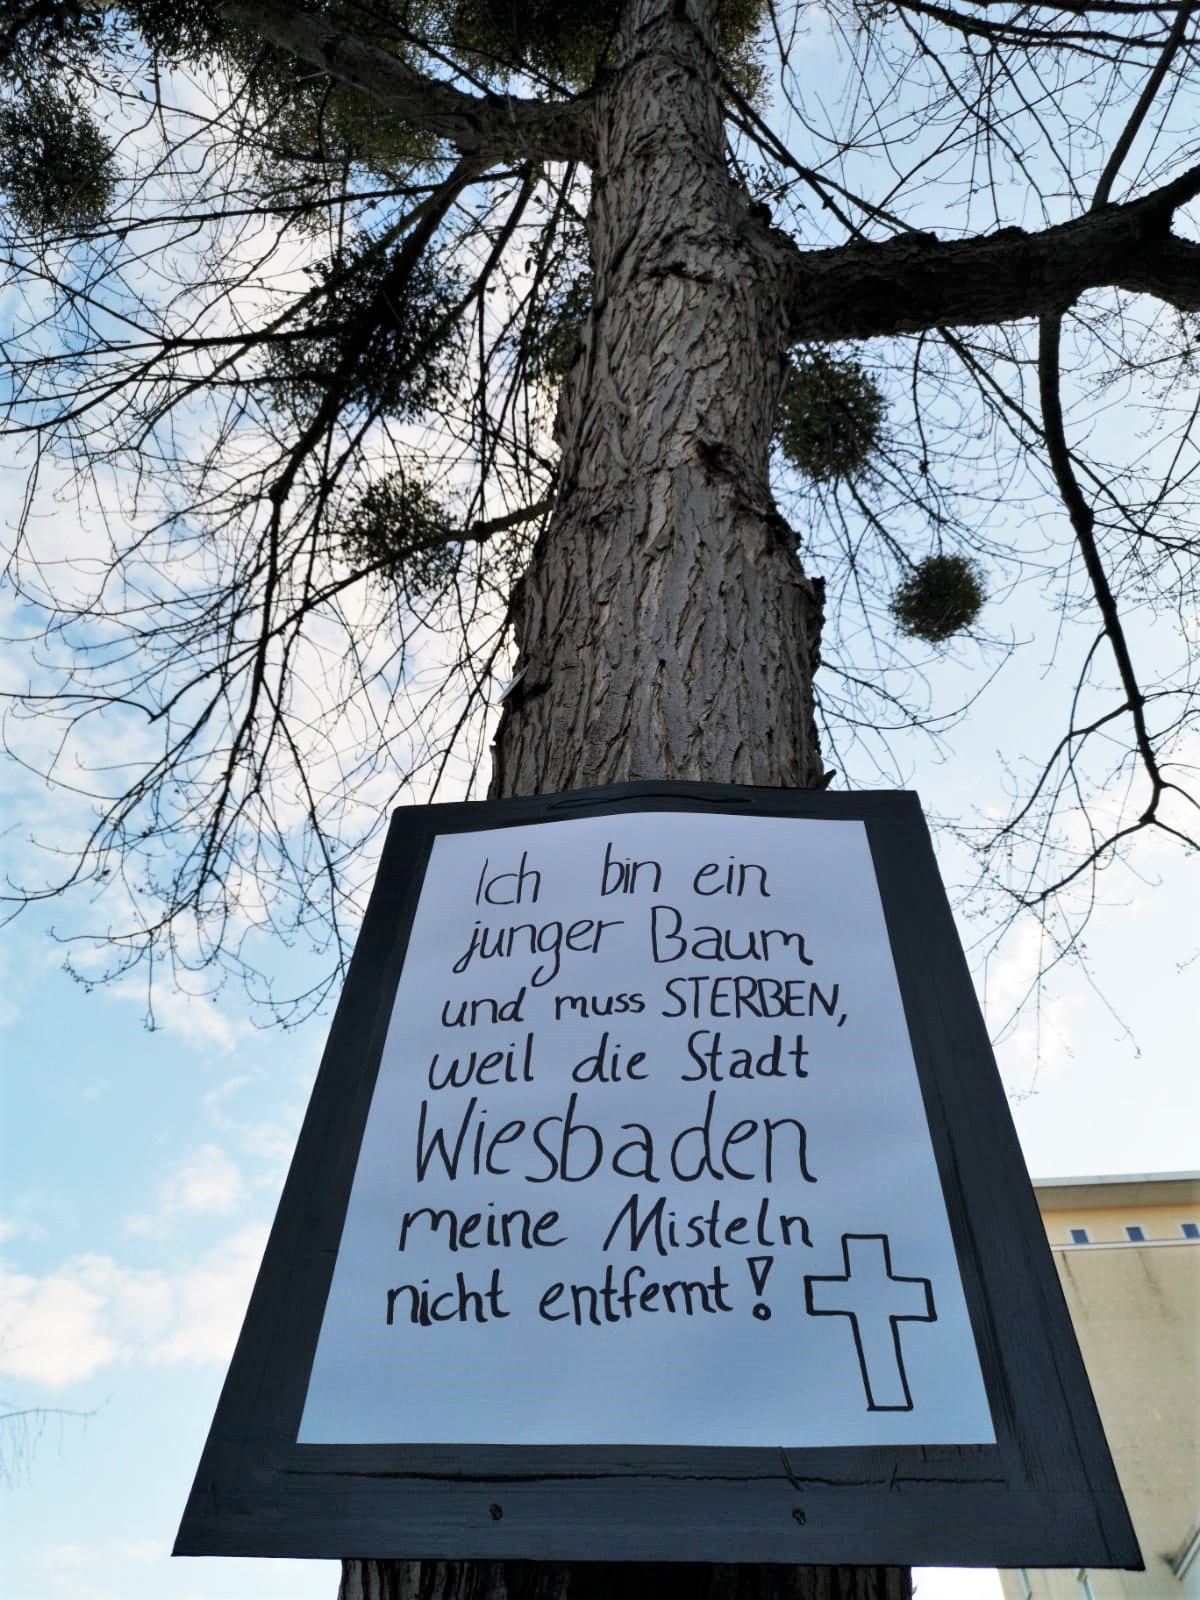 Ich bin ein
junger Baum
und muss STERBEN,
weil die Stadt
Wiesbaden
meine Misteln
nicht entfernt!